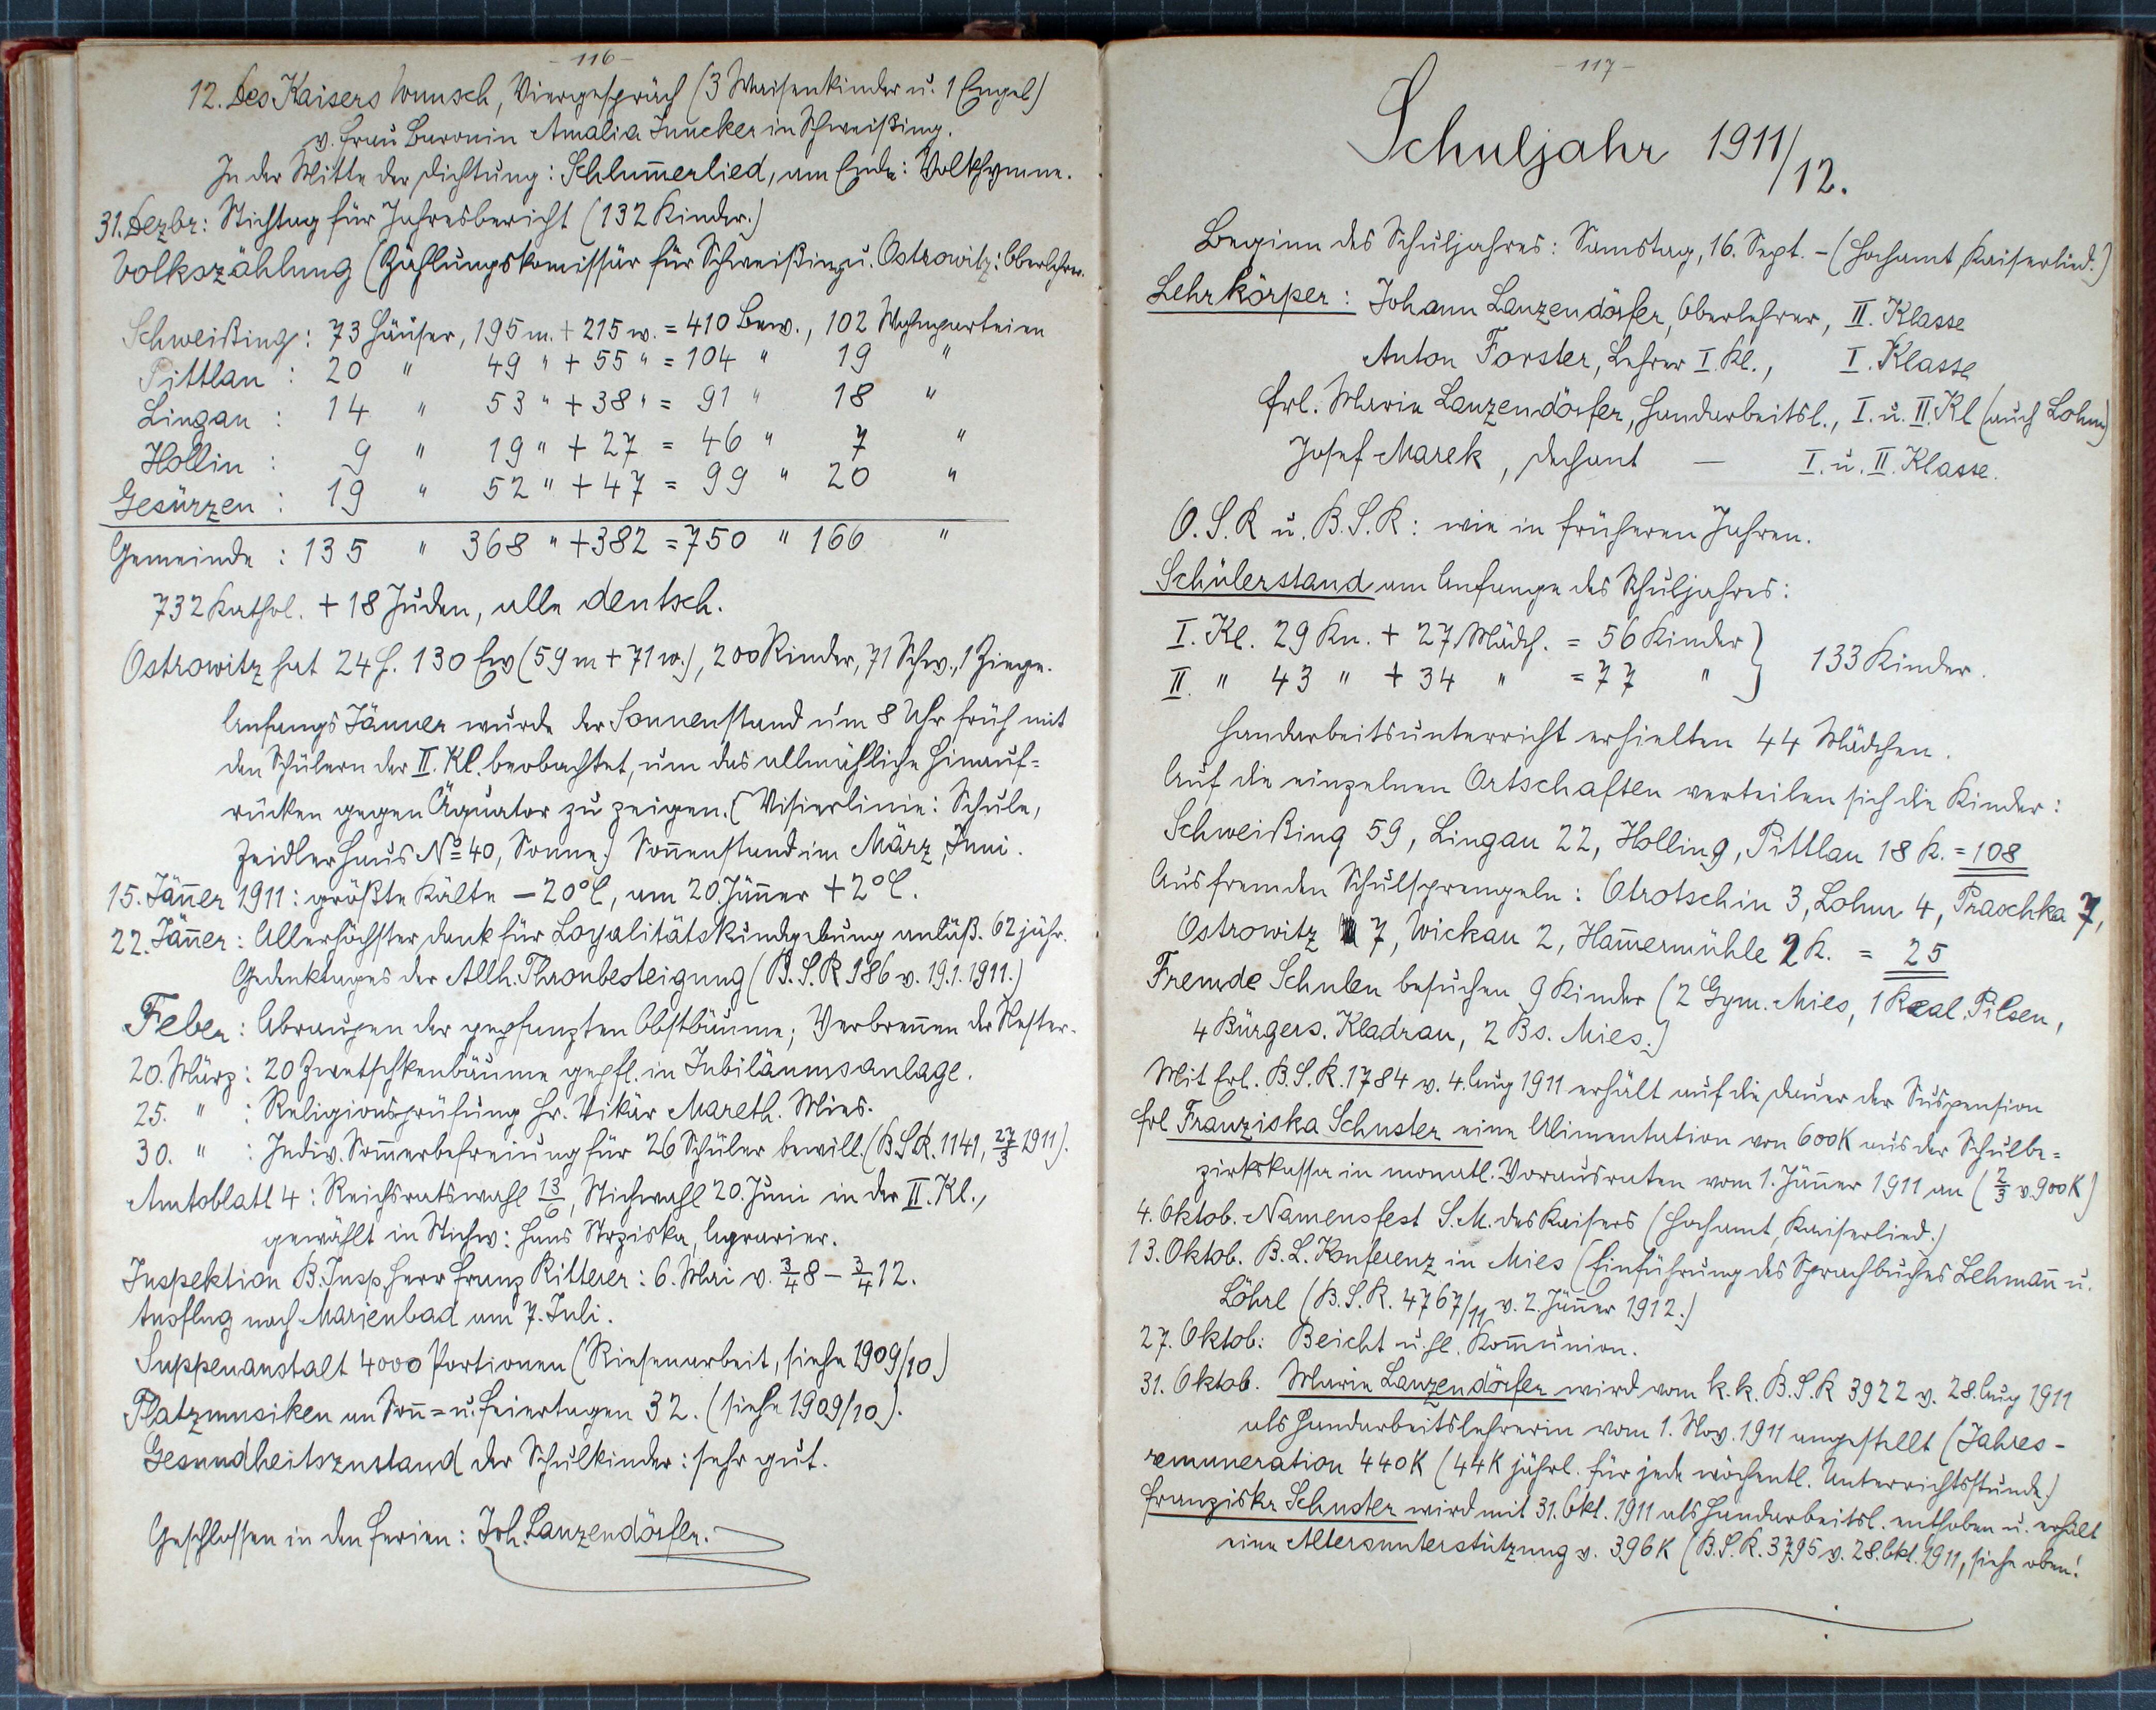 - 116 -
12. Des Kaisers Wunsch, Viergespräch (3 Waisenkinder u. 1 Engel)
v. Frau Baronin Amalia Juncker in Schweißing.
In der Mitte der Dichtung: Schlum̅erlied, am Ende: Volkshymne.
31. Dezbr: Stichtag für Jahresbericht (132 Kinder.)
Volkszählung (Zählungskom̅issär für Schweißing u. Ostrowitz: Oberlehrer.
Schweißing: 73 Häuser, 195 m. + 215 w. = 410 Bew., 102 Wohnparteien
Pittlau : 20 " 49 " + 55 " = 104 " 19 "
Lingau : 14 " 53 " + 38 " = 91 " 18 "
Hollin : 9 " 19 " + 27 = 46 " 7 "
Gesürzen : 19 " 52 " + 47 = 99 " 20 "
Gemeinde : 135 " 368 " + 382 = 750 " 166 "
732 Kathol. + 18 Juden, alle deutsch.
Ostrowitz hat 24 H. 130 Ew (59 m + 71 w.), 200 Rinder, 71 Schw., 1 Ziege.
Anfangs Jänner wurde der Sonnenstand um 8 Uhr früh mit
den Schülern der II. Kl. beobachtet, um das allmähliche Hinauf=
rücken gegen Äquator zu zeigen. (Visierlinie: Schule,
Zeidlerhaus No 40, Sonne.) Son̅enstand im März, Juni.
15. Jän̅er 1911: größte Kälte – 20° C, am 20. Jän̅er + 2° C.
22. Jän̅er: Allerhöchster Dank für Loyalitätskundgebung anläß. 62 jähr.
Gedenktages der Allh. Thronbesteigung (B. S. R 186 v. 19.1.1911.)
Feber: Abraupen der gepflanzten Obstbäume; Verbren̅en der Nester.
20. März: 20 Zwetschkenbäume gepfl. in Jubiläumsanlage.
25. " : Religionsprüfung Hr. Vikär Mareth. Mies.
30. " : Indiv. Som̅erbefreiung für 26 Schüler bewill. (B.S.R. 1141, 27/3 1911).
Amtsblatt 4: Reichsratswahl 13/6, Stichwahl 20. Juni in der II. Kl.,
gewählt in Stichw: Hans Strziska, Agrarier.
Inspektion B. Insp. Herr Franz Ritterer: 6. Mai v. 3/4 8 – 3/4 12.
Ausflug nach Marienbad am 7. Juli.
Suppenanstalt 4000 Portionen (Riesenarbeit, siehe 1909/10)
Platzmusiken an Son̅= u. Feiertagen 32. (siehe 1909/10).
Gesundheitszustand der Schulkinder: sehr gut.
Geschlossen in den Ferien: Joh. Lanzendörfer.
- 117 -
Schuljahr 1911/12.
Beginn des Schuljahres: Samstag, 16. Sept. – (Hochamt, Kaiserlied.)
Lehrkörper: Johann Lanzendörfer, Oberlehrer, II. Klasse
Anton Forster, Lehrer I. Kl., I. Klasse
Frl. Marie Lanzendörfer, Handarbeitsl., I. u. II. Kl (auch Lohm)
Josef Marek, Dechant — I. u. II. Klasse.
O. S. R u. B. S. R: wie in früheren Jahren.
Schülerstand am Anfange des Schuljahres:
I. Kl. 29 Kn. + 27 Mädch. = 56 Kinder
II. " 43 " + 34 " = 77 " } 133 Kinder.
Handarbeitsunterricht erhielten 44 Mädchen.
Auf die einzelnen Ortschaften verteilen sich die Kinder:
Schweißing 59, Lingau 22, Hollin 9, Pittlau 18 K. = 108
Aus fremden Schulsprengeln: Otrotschin 3, Lohm 4, Praschka 7,
Ostrowitz 7, Wickau 2, Ham̅ermühle 2 K. = 25
Fremde Schulen besuchen 9 Kinder (2 Gym. Mies, 1 Real. Pilsen,
4 Bürgers. Kladrau, 2 Bs. Mies.)
Mit Erl. B. S. R. 1784 v. 4. Aug 1911 erhält auf die Dauer der Suspension
Frl Franziska Schuster eine Alimentation von 600 K aus der Schulbe=
zirkskassa in monatl. Vorausraten vom 1. Jän̅er 1911 an (2/3 v. 900 K)
4. Oktob. Namensfest S. M. des Kaisers (Hochamt, Kaiserlied.)
13. Oktob. B. L. Konferenz in Mies (Einführung des Sprachbuches Lehman̅ u.
Löhrl (B. S. R. 4767/11 v. 2. Jän̅er 1912.)
27. Oktob: Beicht u. hl. Kom̅union.
31. Oktob. Marie Lanzendörfer wird vom k. k. B. S. R 3922 v. 28. Aug 1911
als Handarbeitslehrerin vom 1. Nov. 1911 angestellt (Jahres-
remuneration 440 K (44 K jährl. für jede wöchentl. Unterrichtsstunde.)
Franziska Schuster wird mit 31. Okt. 1911 als Handarbeitsl. enthoben u. erhält
eine Altersunterstützung v. 396 K (B. S. R. 3795 v. 28. Okt. 1911, siehe oben!